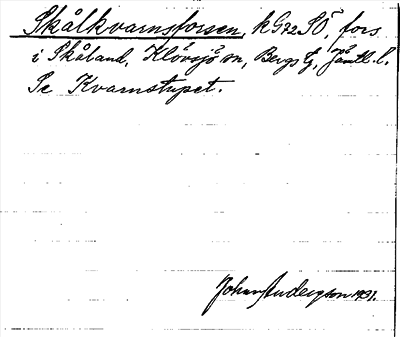 Skålkvarnsforsen, k G72SÖ, fors
i Skåland, Klövsjö sn, Bergs tg, Jämtl. l.
Se Kvarnstupet.
Johan Andersson 1931.